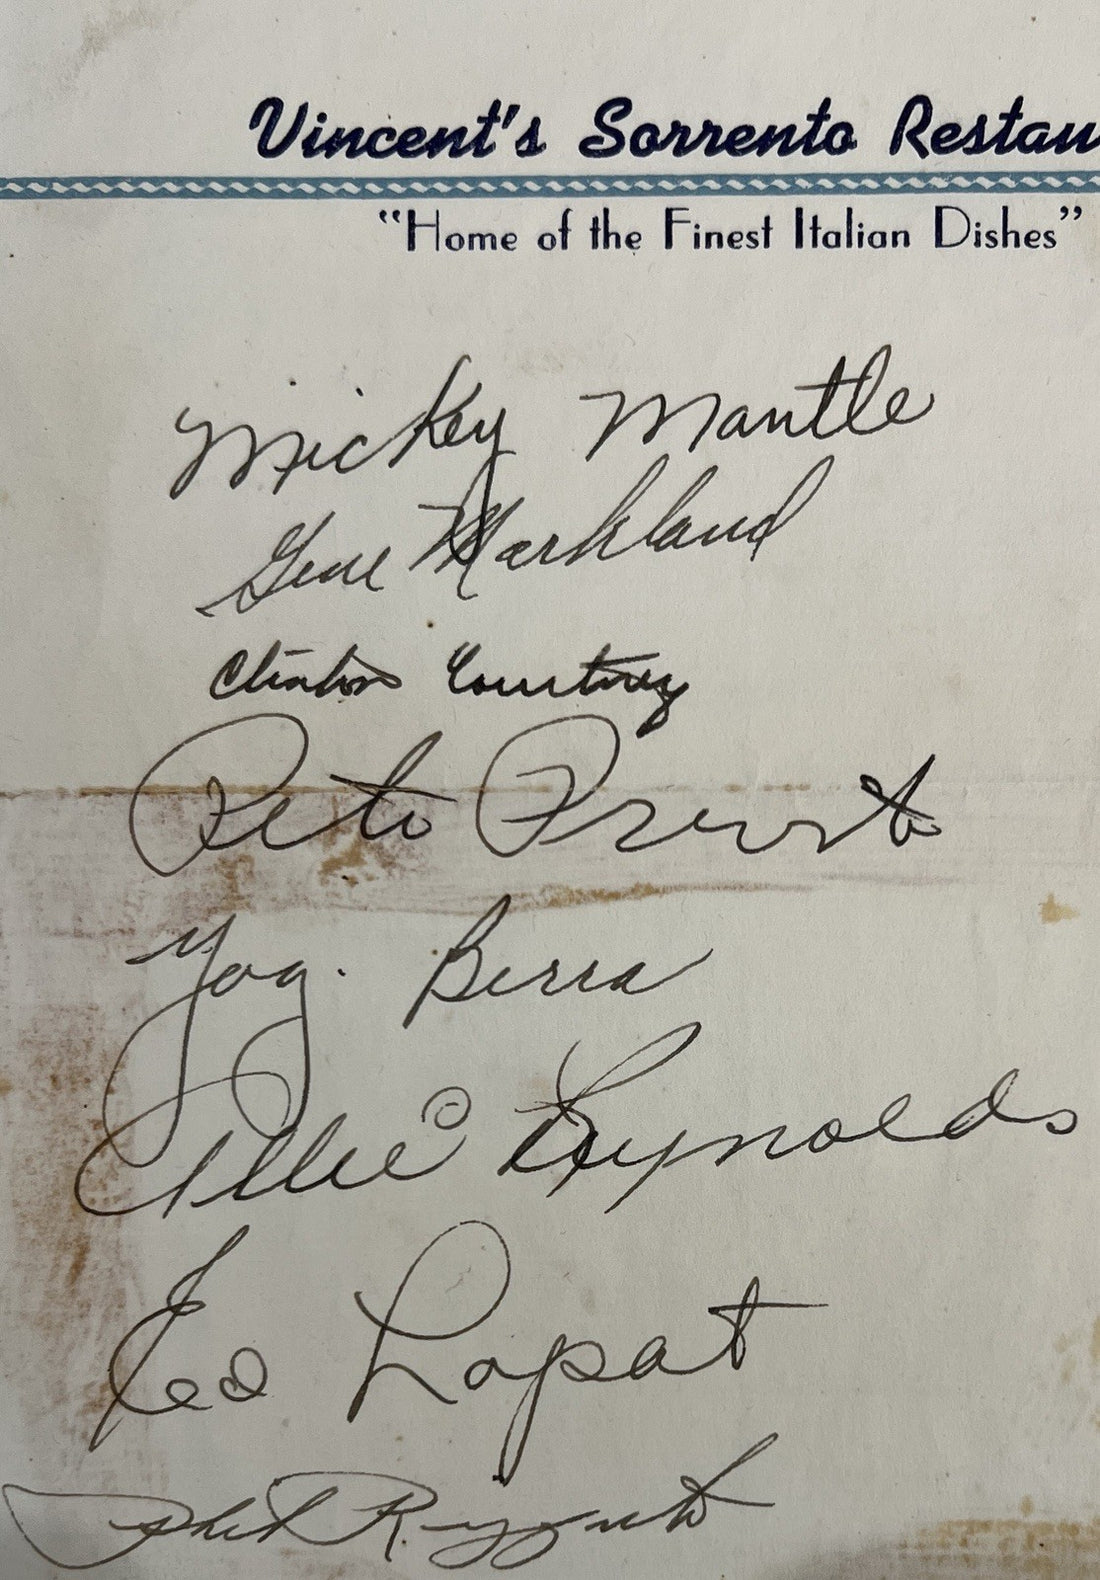 Vincent's Sorrento Restau
"Home of the Finest Italian Dishes"
Mickey Mantle
Gene Markland
Clinton Courtney
Pete
Yogi Berra
Allie Reynolds
Ed Lopat
Phil Rizzuto